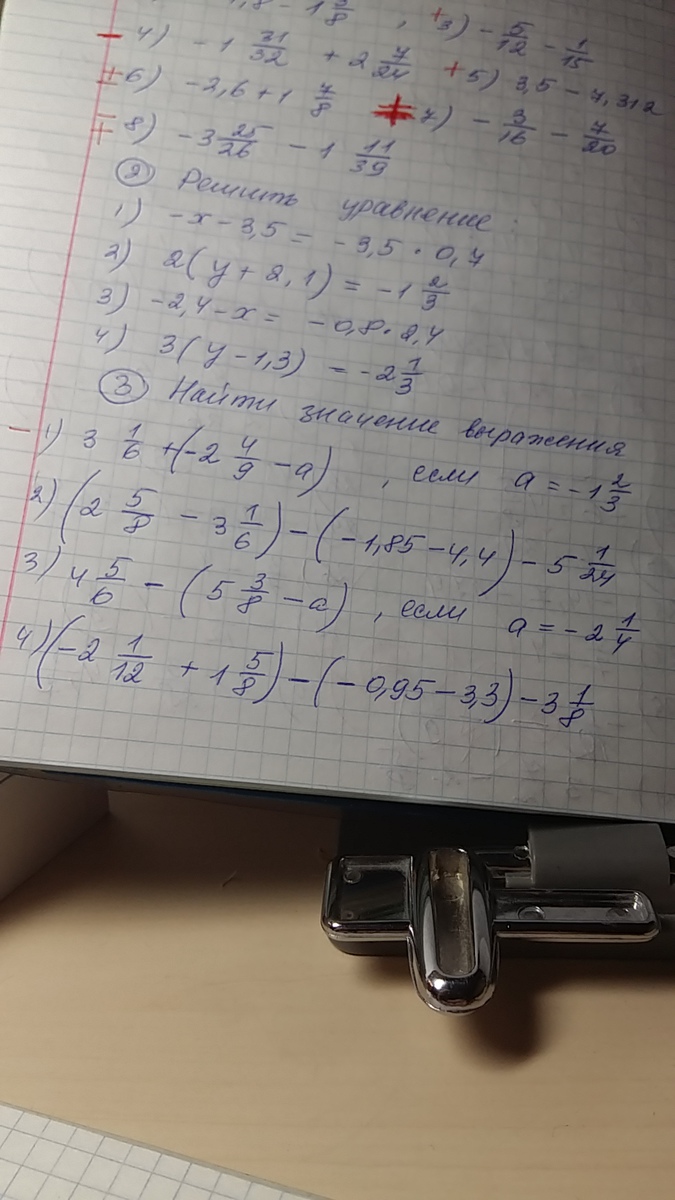 1,8 - 1 3/8 , +3) - 5/12 - 1/15
- 4) - 1 31/32 + 2 7/24 + 5) 3,5 - 7,312
± 6) -2,6 + 1 7/8 7) - 3/16 - 7/20
8) - 3 25/26 - 1 11/39
② Решить уравнение:
1) -x - 3,5 = -3,5 · 0,7
2) 2(y + 2,1) = -1 2/3
3) -2,4 - x = -0,8 · 2,4
4) 3(y - 1,3) = -2 1/3
③ Найти значение выражения
- 1) 3 1/6 + (-2 4/9 - a) , если a = -1 2/3
2) (2 5/8 - 3 1/6) - (-1,85 - 4,4) - 5 1/24
3) 4 5/6 - (5 3/8 - a) , если a = -2 1/4
4) (-2 1/12 + 1 5/8) - (-0,95 - 3,3) - 3 1/8